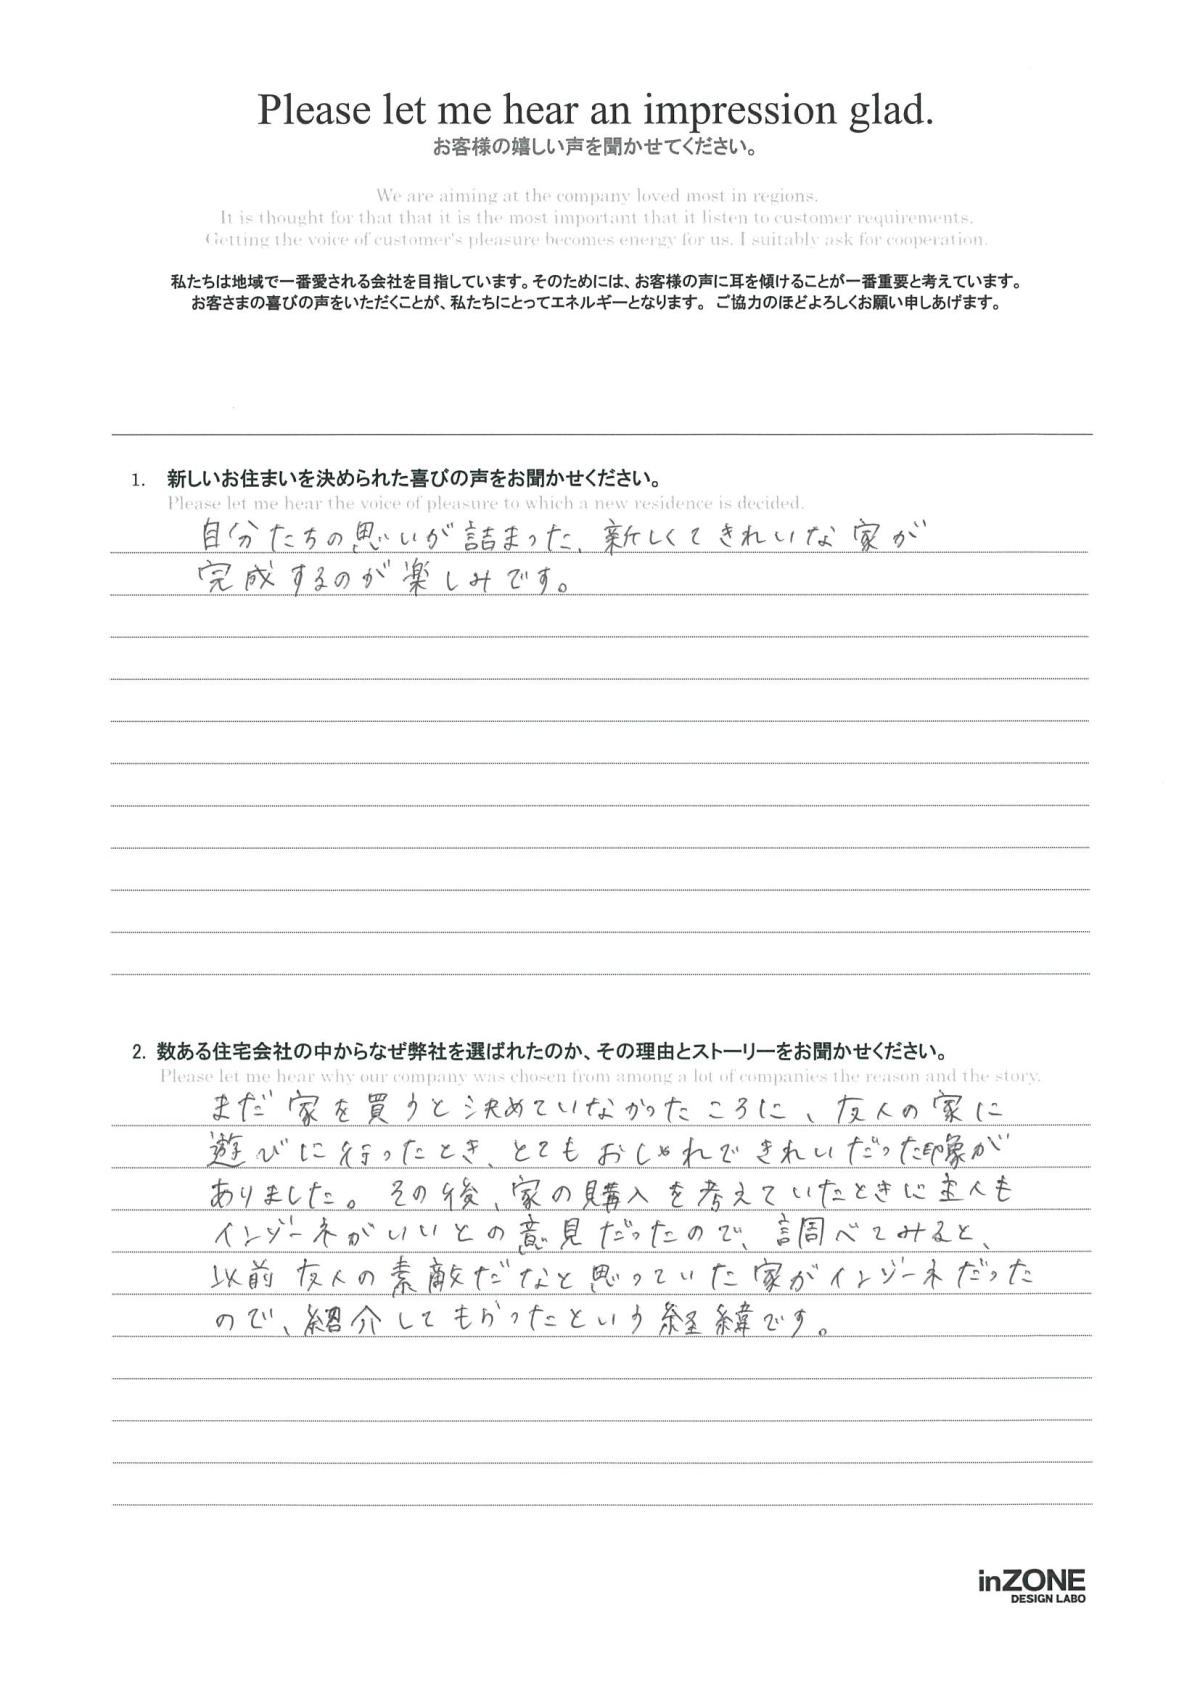 Please let me hear an impression glad.
お客様の嬉しい声を聞かせてください。
We are aiming at the company loved most in regions.
It is thought for that that it is the most important that it listen to customer requirements.
Getting the voice of customer's pleasure becomes energy for us. I suitably ask for cooperation.
私たちは地域で一番愛される会社を目指しています。そのためには、お客様の声に耳を傾けることが一番重要と考えています。
お客さまの喜びの声をいただくことが、私たちにとってエネルギーとなります。 ご協力のほどよろしくお願い申しあげます。
1. 新しいお住まいを決められた喜びの声をお聞かせください。
Please let me hear the voice of pleasure to which a new residence is decided.
自分たちの思いが詰まった、新しくてきれいな家が
完成するのが楽しみです。
2. 数ある住宅会社の中からなぜ弊社を選ばれたのか、その理由とストーリーをお聞かせください。
Please let me hear why our company was chosen from among a lot of companies the reason and the story.
まだ家を買うと決めていなかったころに、友人の家に
遊びに行ったとき、とてもおしゃれできれいだった印象が
ありました。その後、家の購入を考えていたときに主人も
インゾーネがいいとの意見だったので、調べてみると、
以前友人の素敵だなと思っていた家がインゾーネだった
ので、紹介してもらったという経緯です。
inZONE
DESIGN LABO